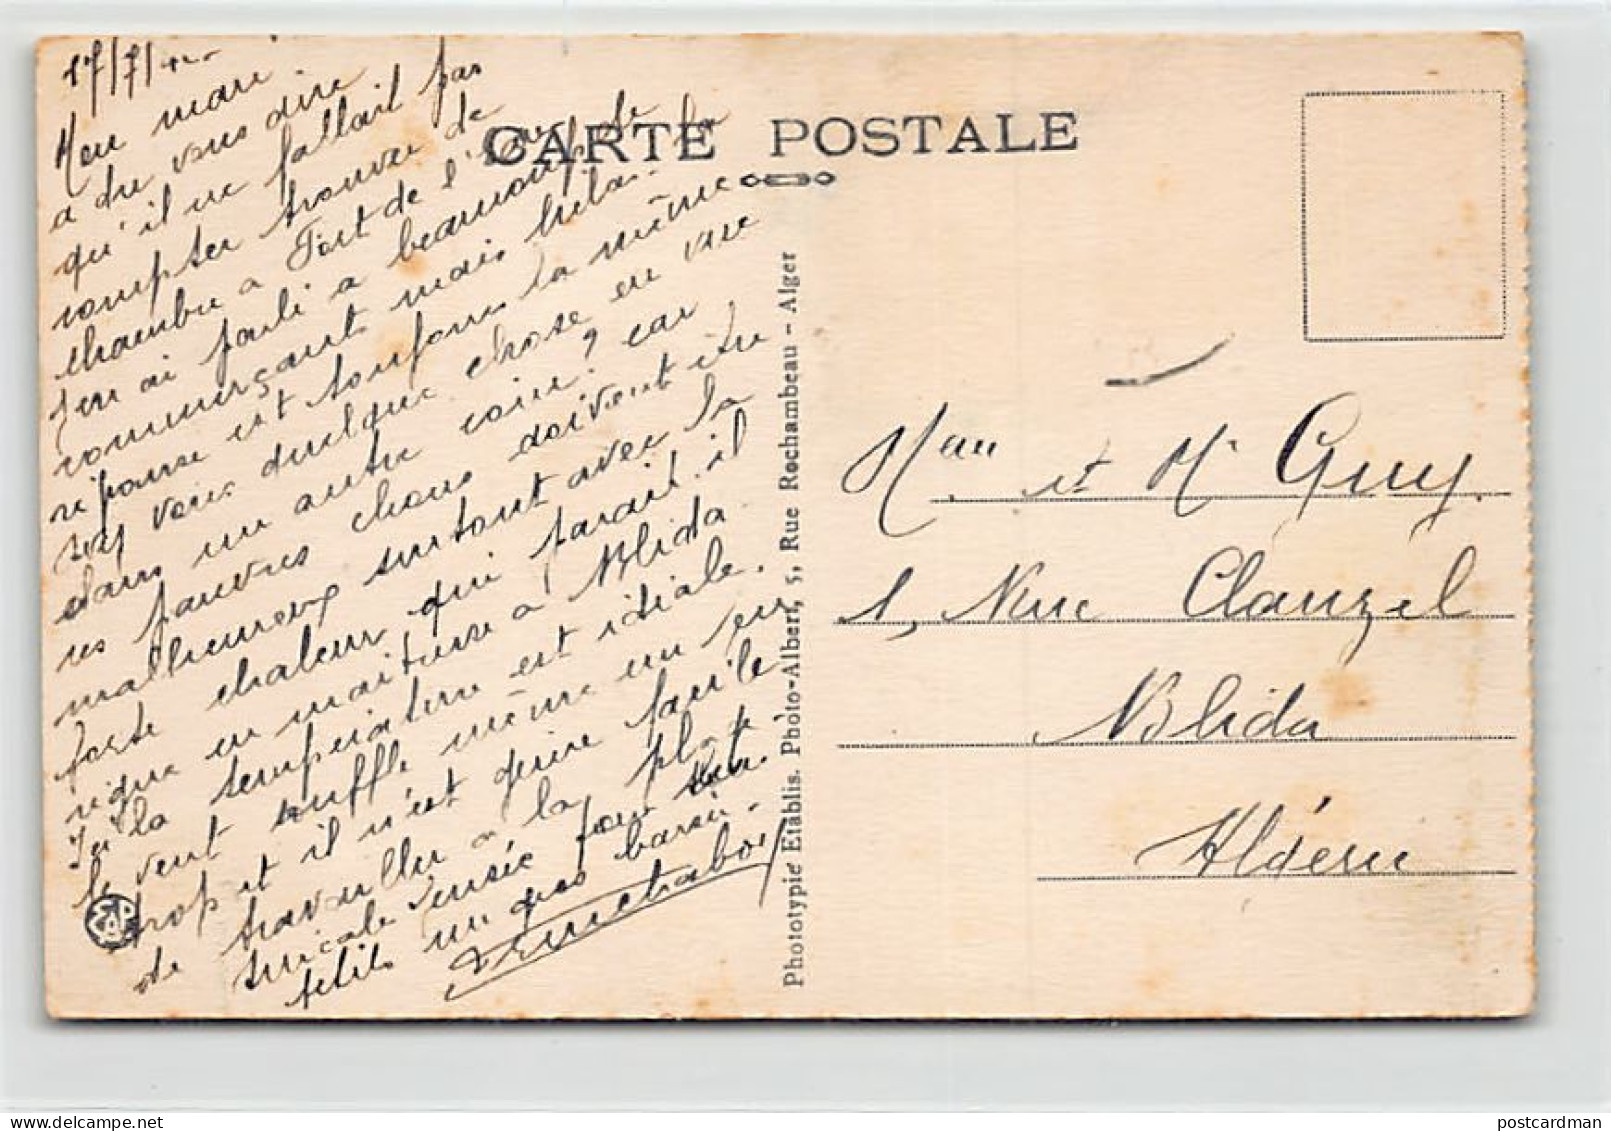 17/7/42
Mon mari
a du vous dire
qu'il ne fallait pas
compter trouver de
chambre a Fort de l'Eau
j'en ai parlé a beaucoup de
commerçant mais hélas. la
réponse est toujours la même
avez vous quelque chose en vue
dans un autre coin? car
ces pauvres chous doivent être
malheureux surtout avec la
forte chaleur qui parait. il
règne en maitresse a Blida.
Ici la température est idéale.
le vent souffle même un peu
trop et il n'est guère facile
de travailler a la plage.
Amicale pensée pour
petits un gros baiser.
CARTE POSTALE
Phototypie Etablis. Photo-Albert, 5, Rue Rochambeau - Alger
Mme et Mr Guy.
1, Rue Clauzel
Blida
Algérie
postcardman